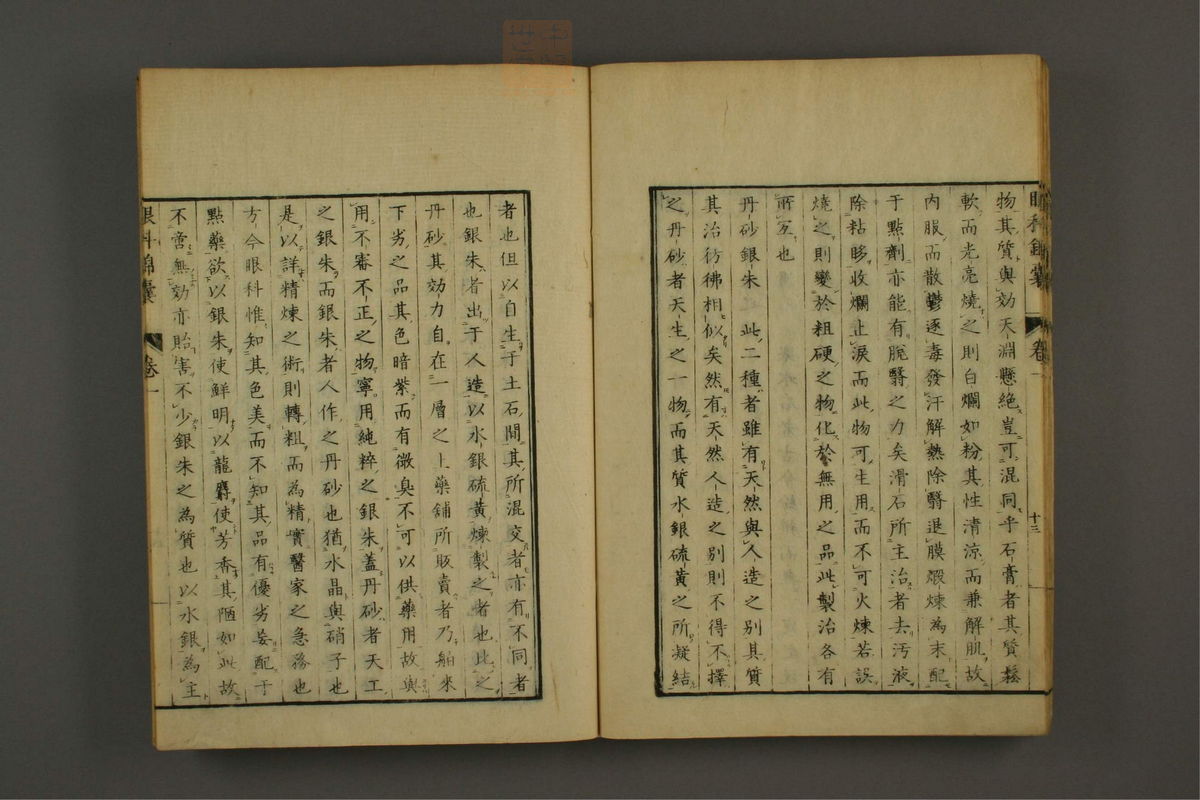 眼科錦囊 卷一 十三
物其質與効天淵懸絶豈可混同乎石膏者其質鬆
軟而光亮燒之則白爛如粉其性清涼而兼解肌故
内服而散鬱逐毒發汗解熱除翳退膜煆煉為末配
于點劑亦能有脫翳之力矣滑石所主治者去汚液
除粘眵收爛止淚而此物可生用而不可火煉若誤
燒之則變於粗硬之物化於無用之品此製治各有
所互也
丹砂銀朱 此二種者雖有天然與人造之別其質
其治彷彿相似矣然有天然人造之別則不得不擇
之丹砂者天生之一物而其質水銀硫黃之所凝結
者也但以自生于土石間其所混交者亦有不同者
也銀朱者出于人造以水銀硫黃煉製之者也比之
丹砂其効力自在一層之上藥舖所販賣者乃舶來
下劣之品其色暗紫而有微臭不可以供藥用故與
用不審不正之物寧用純粹之銀朱蓋丹砂者天工
之銀朱而銀朱者人作之丹砂也猶水晶與硝子也
是以詳精煉之術則轉粗而為精實醫家之急務也
方今眼科惟知其色美而不知其品有優劣妄配于
點藥欲以銀朱使鮮明以龍麝使芳香其陋如此故
不啻無効亦貽害不少銀朱之為質也以水銀為主
眼科錦囊 卷一